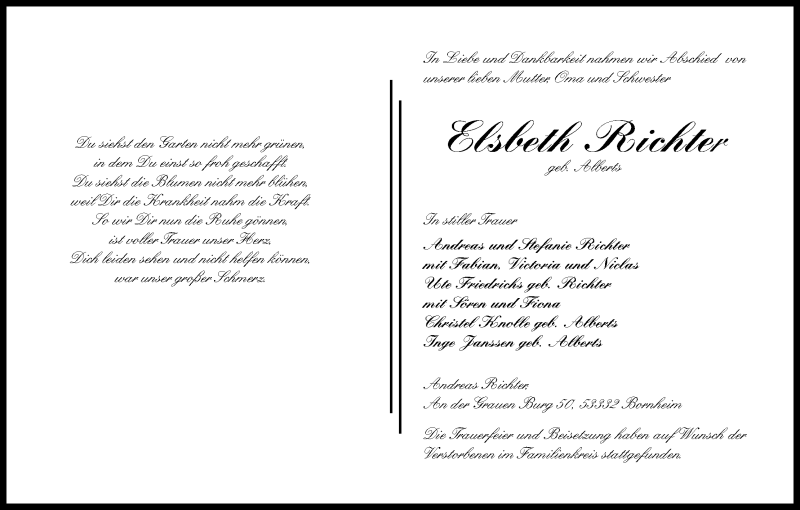 Du siehst den Garten nicht mehr grünen,
in dem Du einst so froh geschafft.
Du siehst die Blumen nicht mehr blühen,
weil Dir die Krankheit nahm die Kraft.
So wir Dir nun die Ruhe gönnen,
ist voller Trauer unser Herz,
Dich leiden sehen und nicht helfen können,
war unser großer Schmerz.
In Liebe und Dankbarkeit nahmen wir Abschied von
unserer lieben Mutter, Oma und Schwester
Elsbeth Richter
geb. Alberts
In stiller Trauer
Andreas und Stefanie Richter
mit Fabian, Victoria und Niclas
Ute Friedrichs geb. Richter
mit Sören und Fiona
Christel Knolle geb. Alberts
Inge Janssen geb. Alberts
Andreas Richter,
An der Grauen Burg 50, 53332 Bornheim
Die Trauerfeier und Beisetzung haben auf Wunsch der
Verstorbenen im Familienkreis stattgefunden.